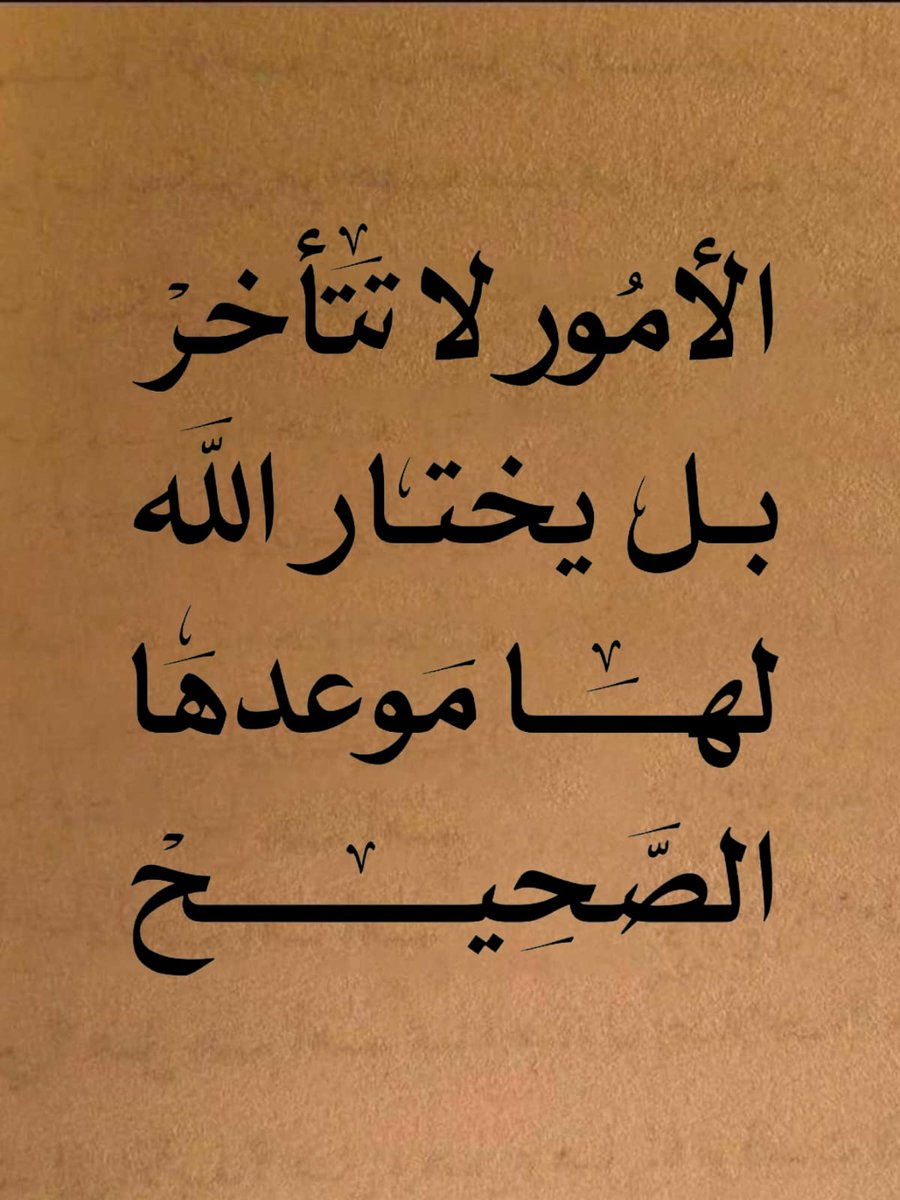 الأمُور لا تتَأخرْ
بل يختار اللَّه
لهَا مَوعدهَا
الصَّحِيحْ